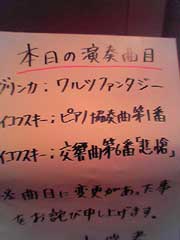 本日の演奏曲目
グリンカ:ワルツファンタジー
イコフスキー:ピアノ協奏曲第1番
イコフスキー:交響曲第6番"悲愴"
曲目に変更があった事
をお詫び申し上げます。